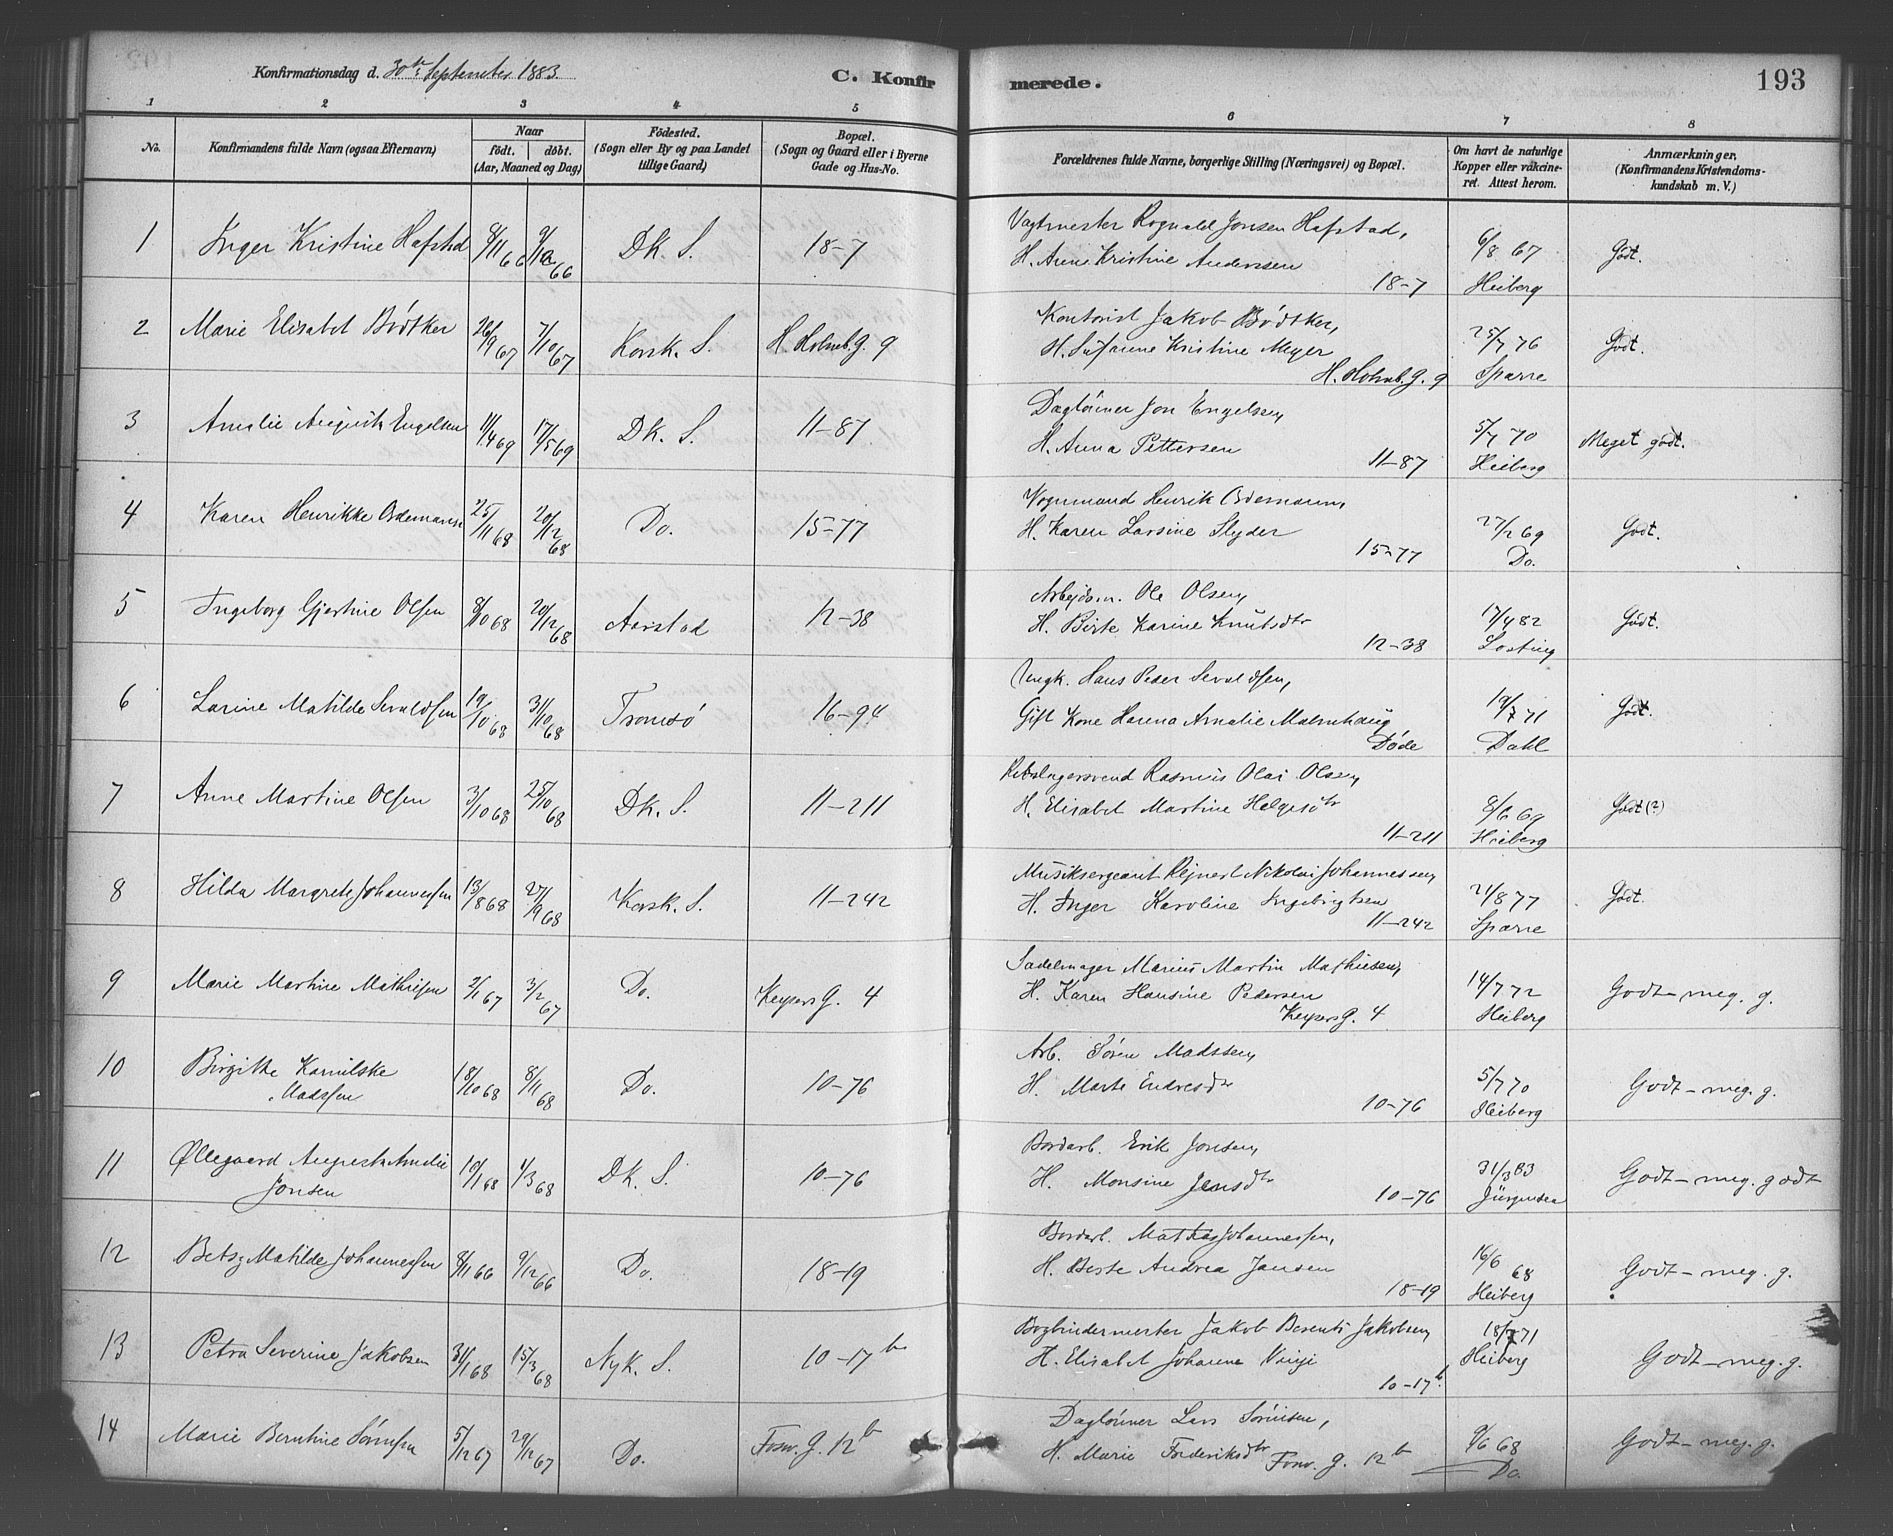 Konfirmationsdag d. 30te September 1883.
C. Konfirmerede.
193
1 2 3 4 5 6 7 8
No.
Konfirmandens fulde Navn (ogsaa Efternavn)
Naar
födt. döbt.
(Aar, Maaned og Dag)
Födested.
(Sogn eller By og paa Landet
tillige Gaard)
Bopæl.
(Sogn og Gaard eller i Byerne
Gade og Hus-No.
Forældrenes fulde Navne, borgerlige Stilling (Næringsvei) og Bopæl.
Om havt de naturlige
Kopper eller vakcine-
ret. Attest herom.
Anmærkninger,
(Konfirmandens Kristendoms-
kundskab m. V.)
1 Inger Kristine Hafstad 8/11 66 9/12 66 Dk. S. 18-7
Vagtmester Rognald Jonsen Hafstad,
H. Anne Kristine Anderssen
18-7
6/8 67
Heiberg
Godt.
2 Marie Elisabet Bödtker 26/9 67 7/10 67 Korsk. S. H. Holmb.G. 9
Kontorist Jakob Bödtker,
H. Susanne Kristine Meyer
H. Holmb.G. 9
25/7 76
Sparre
Godt.
3 Amalie Augusta Engelsen 11/4 69 17/5 69 Dk. S. 11-87
Daglönner Jon Engelssen,
H. Anna Pettersen
11-87
5/7 70
Heiberg
Meget godt.
4 Karen Henrikke Odemann 25/11 68 20/12 68 Do. 15-77
Vognmand Henrik Odemann,
H. Karen Larsine Slyder
15-77
27/2 69
Do.
Godt.
5 Ingeborg Gjertine Olsen 8/10 68 20/12 68 Aarstad 12-38
Arbejdsm. Ole Olsen,
H. Birte Karine Knutsdtr
12-38
17/4 82
Losting
Godt.
6 Larine Matilde Sevaldsen 19/10 68 31/10 68 Tromsö 16-94
Ungk. Hans Peder Sevaldsen,
Gift Kone Harena Amalie Malmhaug
Döde
19/7 71
Dahl
Godt.
7 Anne Martine Olsen 3/10 68 25/10 68 Dk. S. 11-211
Rebslagersvend Rasmus Olai Olsen,
H. Elisabet Martine Helgesdtr
11-211
8/6 69
Heiberg
Godt (?)
8 Hilda Margrete Johannessen 13/8 68 27/9 68 Korsk. S. 11-242
Musiksergeant Rejnert Nikolai Johannessen,
H. Inger Karoline Ingebrigtsen
11-242
21/8 77
Sparre
Godt.
9 Marie Martine Mathisen 2/1 67 3/2 67 Do. Keysers G. 4
Sadelmager Marius Martin Mathiesen,
H. Karen Hansine Pedersen
Keysers G. 4
14/7 72
Heiberg
Godt - meg. g.
10 Birgitte Kamilske
Madssen
18/10 68 8/11 68 Do. 10-76
Arb. Sören Madssen,
H. Marte Endresdtr
10-76
5/7 70
Heiberg
Godt - meg. g.
11 Øllegaard Augusta Amalie
Jonsen
19/1 68 4/3 68 Dk. S. 10-76
Bordarb. Erik Jonsen,
H. Monsine Jensdtr
10-76
31/3 83
Jürgensen
Godt - meg. godt
12 Betsy Matilde Johannessen 8/11 66 9/12 66 Do. 18-19
Bordarb. Mathias Johannessen,
H. Berte Andrea Jansen
18-19
16/6 68
Heiberg
Godt - meg. g.
13 Petra Severine Jakobsen 31/1 68 15/3 68 Nyk. S. 10-17b
Bogbindermester Jakob Berents Jakobsen,
H. Elisabet Johanne Vinje
10-17b.
18/7 71
Heiberg
Godt - meg. g.
14 Marie Berntine Sörensen 5/12 67 29/12 67 Do. Forsv. G. 12b
Daglönner Lars Sörensen,
H. Marie Frederiksdtr Forsv. G. 12b
9/6 68
Do.
Godt - meg. g.